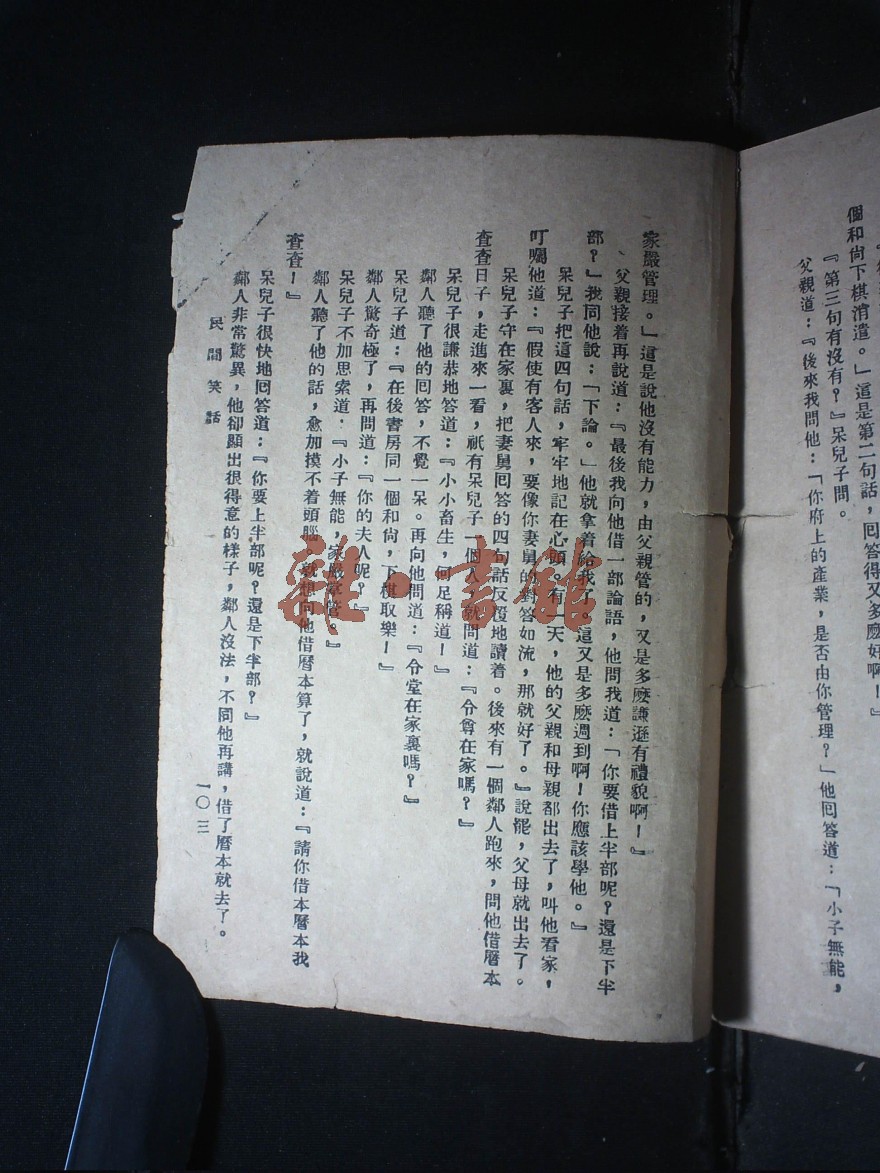 個和尙下棋消遣。」這是第二句話，回答得又多麽好啊！』
『第三句有沒有？』呆兒子問。
父親道：『後來我問他：「你府上的產業，是否由你管理？」他回答道：「小子無能，
家嚴管理。」這是說他沒有能力，由父親管的，又是多麽謙遜有禮貌啊！』
父親接着再說道：『最後我向他借一部論語，他問我道：「你要借上半部呢？還是下半
部？」我同他說：「下論。」他就拿着給我了。這又是多麽週到啊！你應該學他。』
呆兒子把這四句話，牢牢地記在心頭。有一天，他的父親和母親都出去了，叫他看家，
叮囑他道：『假使有客人來，要像你妻舅的對答如流，那就好了。』說罷，父母就出去了。
呆兒子守在家裏，把妻舅回答的四句話反覆地讀着。後來有一個鄰人跑來，問他借曆本
查查日子，走進來一看，祇有呆兒子一個人，就問道：『令尊在家嗎？』
呆兒子很謙恭地答道：『小小畜生，何足稱道！』
鄰人聽了他的回答，不覺一呆。再向他問道：『令堂在家裏嗎？』
呆兒子道：『在後書房同一個和尙，下棋取樂！』
鄰人驚奇極了，再問道：『你的夫人呢？』
呆兒子不加思索道：『小子無能 家嚴掌管。』
鄰人聽了他的話，愈加摸不着頭腦，就想向他借曆本算了，就說道：『請你借本曆本我
查查！』
呆兒子很快地回答道：『你要上半部呢？還是下半部？』
鄰人非常驚異，他卻顯出很得意的樣子，鄰人沒法，不同他再講，借了曆本就去了。
民間笑話
一〇三
雜·書館